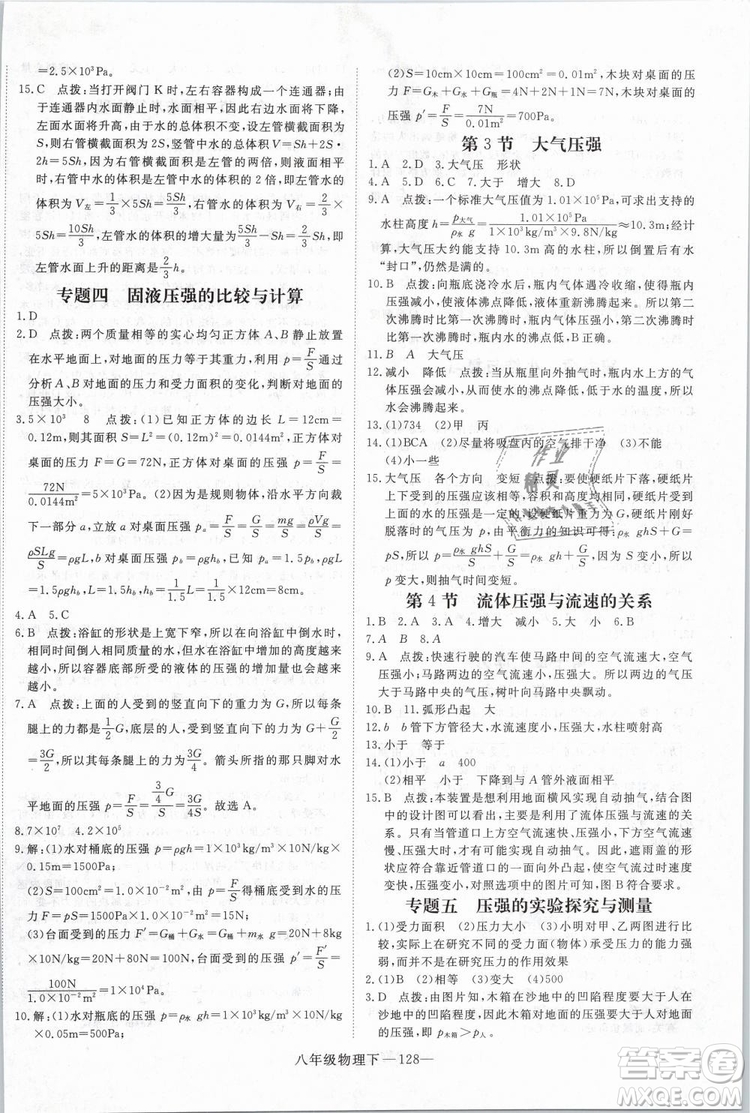 =2.5×10³Pa。
15.C　点拨:当打开阀门 K 时,左右容器构成一个连通器,由
于连通器内水面静止时,水面相平,所以,右管水面下降,左
管水面将升高,由于水的总体积不变,设左管横截面积为
S,则右管横截面积为 2S,竖管中水的总体积为 S×h+2S×
2h=5Sh。因为右管横截面积是左管的两倍,则右管水的
体积为左管水的体积的两倍,水面相平后,左管水的
体积为 V左=1/3×5Sh=5Sh/3,右管水的体积为 V右=2/3×
5Sh=10Sh/3,左管水的体积的增大量为5Sh/3-Sh=2/3Sh,即
左管水面上升的距离为2/3h。
专题四　固液压强的比较与计算
1.D
2.D　点拨:两个质量相等的实心均匀正方体 A、B 静止放置
在水平地面上,对地面的压力相等,利用 p=F/S 求出,通过
分析 A、B 对地面的压力和受力面积的变化,判断对地面的
压强大小。
3.5×10³　8　点拨:(1)已知正方体的边长 L=12cm=
0.12m,则底面积 S=L²=(0.12m)²=0.0144m²,正方体对
桌面的压力 F=G=72N,正方体对桌面的压强 p=F/S=
72N/0.0144m²=5000Pa。(2)因为是规则物体,沿水平方向截
下一部分 a,对水平面的压强 p=F/S=G/S=mg/S=ρVg/S=
ρSLg/S=ρgL,b 对水平面的压强 pb=ρghb,pa=1.5pb,
ρgL=1.5ρghb,hb=1/1.5L=1/1.5×12cm=8cm。
4.A　5.C
6.B　点拨:浴缸的形状是上宽下窄,所以在向浴缸中倒水时,
相同时间内,水在浴缸内增加的高度越来越小,根据液体压
强公式 p=ρgh 可知,水对浴缸底部的压强的增加量也越来
越小。
7.A　点拨:上面的人,受到的竖直向下的重力为 G,所以每条
腿上的力为 G/2,底层的人,受到的竖直向下的力为 G+G/2=
3G/2,所以其每条腿上的力为3G/4,故每条腿上的压力为3G/4,对
水平地面的压强 p=F/S=(3/4G)/S=3G/4S。故选 A
8.7×10⁷　4.2×10⁵
9.解:(1)水对桶底的压强 p=ρ水gh=1×10³kg/m³×10N/kg×
0.15m=1500Pa;
(2)S=100cm²=1.0×10⁻²m²,由 p=F/S 得桶底受到的水的压
力 F=pS=1500Pa×1.0×10⁻²m²=15N;
(3)台面受到的压力 F′=G桶+G水+F=m桶g+m水g+F=1kg×
10N/kg+2kg×10N/kg+70N=100N,台面受到的压强 p′=F′/S=
100N/1.0×10⁻²m²=1×10⁴Pa。
10.解:(1)水对瓶底的压强 p=ρ水gh=1×10³kg/m³×10N/kg
×0.05m=500Pa;
(2)S=10cm×10cm=100cm²=0.01m²,木块对桌面的压
力 F=G木+G水+G瓶=4N+2N+1N=7N,木块对桌面的
压强 p′=F/S=7N/0.01m²=700Pa。
第 3 节　大气压强
1.A　2.D　3.大气压　形状
4.A　5.D　6.C　7.大于　增大　8.D
9.A　点拨:一个标准大气压值为 1.01×10⁵Pa,可求出支持的
水柱高度 h=p大气/ρ水g=1.01×10⁵Pa/1×10³kg/m³×9.8N/kg≈10.3m;经计
算,大气压大约能支持 10.3m 高的水柱,所以需要足够的水
“封口”,仍然是满的。
10.C　点拨:向瓶底浇冷水后,瓶内气体遇冷收缩,压强减小,
液体沸点降低,所以水会重新沸腾,第二次沸腾与第一次
沸腾时比较:第二次沸腾时,瓶内气压小于第一次沸腾时
瓶内气压。故选 B。
11.B　大气压
12.减小　降低　点拨:当从瓶里向外抽气时,瓶内水面上的气
体压强减小,使水的沸点降低,水的沸点低于水的温度,所以
水会沸腾起来。
13.(1)734　(2)甲　丙
14.(1)BCA　(2)尽量将吸盘内的空气排干净　(3)不能
(4)小一些
15.大气压　各个方向　变短　点拨:要使硬纸片下落,硬纸片
受到的压强应该相等,容积和高度均与硬纸片接触面
受到的压强是一定的,与液体密度有关,所以硬纸片刚好
脱落时的气压为 p,由平衡力的知识可知:pS=ρghS+G,
所以 p=(ρghS+G)/S=ρgh+G/S,若水换成盐水,密度变大,所以
p 变大,则抽气时间变短。
第 4 节　流体压强与流速的关系
1.B　2.B　3.A　4.增大　减小　小　5.大　小　6.A
7.A　8.A
9.A　点拨:快速行驶的汽车使马路中央的空气流速大,压强
小;马路两边空气流速小,压强大。于是路两边的空气就会
流向马路中央的气流,树叶向马路中央飘动。
10.B　11.弧形凸起　大
12.b　b 管下方管径大,水流速度小,压强大,水柱向高处喷射
13.小于　等于
14.(1)小于　a　400
(2)相平　相平　降到与 A 管外液面相平
15.B　点拨:本装置是利用地面横风实现自动抽气,由图中
的设计图可以看出,主要利用了流体压强与流速的关系,
所以当管道口上方空气流速快、压强小,下方空气流速
慢、压强大,这样便可以自动抽气了。因此,遮雨盖的形状
应符合靠近管道口的一面向外凸出,使空气流过时
流速加快,所以选项 B 符合题意。
专题五　压强的实验探究与测量
1.(1)受力面积　(2)压力大小　(3)小明对甲、乙两图进行
比较,实际上是在研究不同的受力面(物体)承受压力的能力强
弱,不是在研究压力的作用效果
2.(1)B　(2)相等　(3)变大　(4)500
3.D　点拨:由图片知,木箱在沙地中的凹陷程度大于人在
沙地中的凹陷程度,因此木箱对沙地的压强大于人对沙地
的压强,即 p木箱>p人。
八年级物理下—128—
作业
精灵
答案圈
MXQE.COM